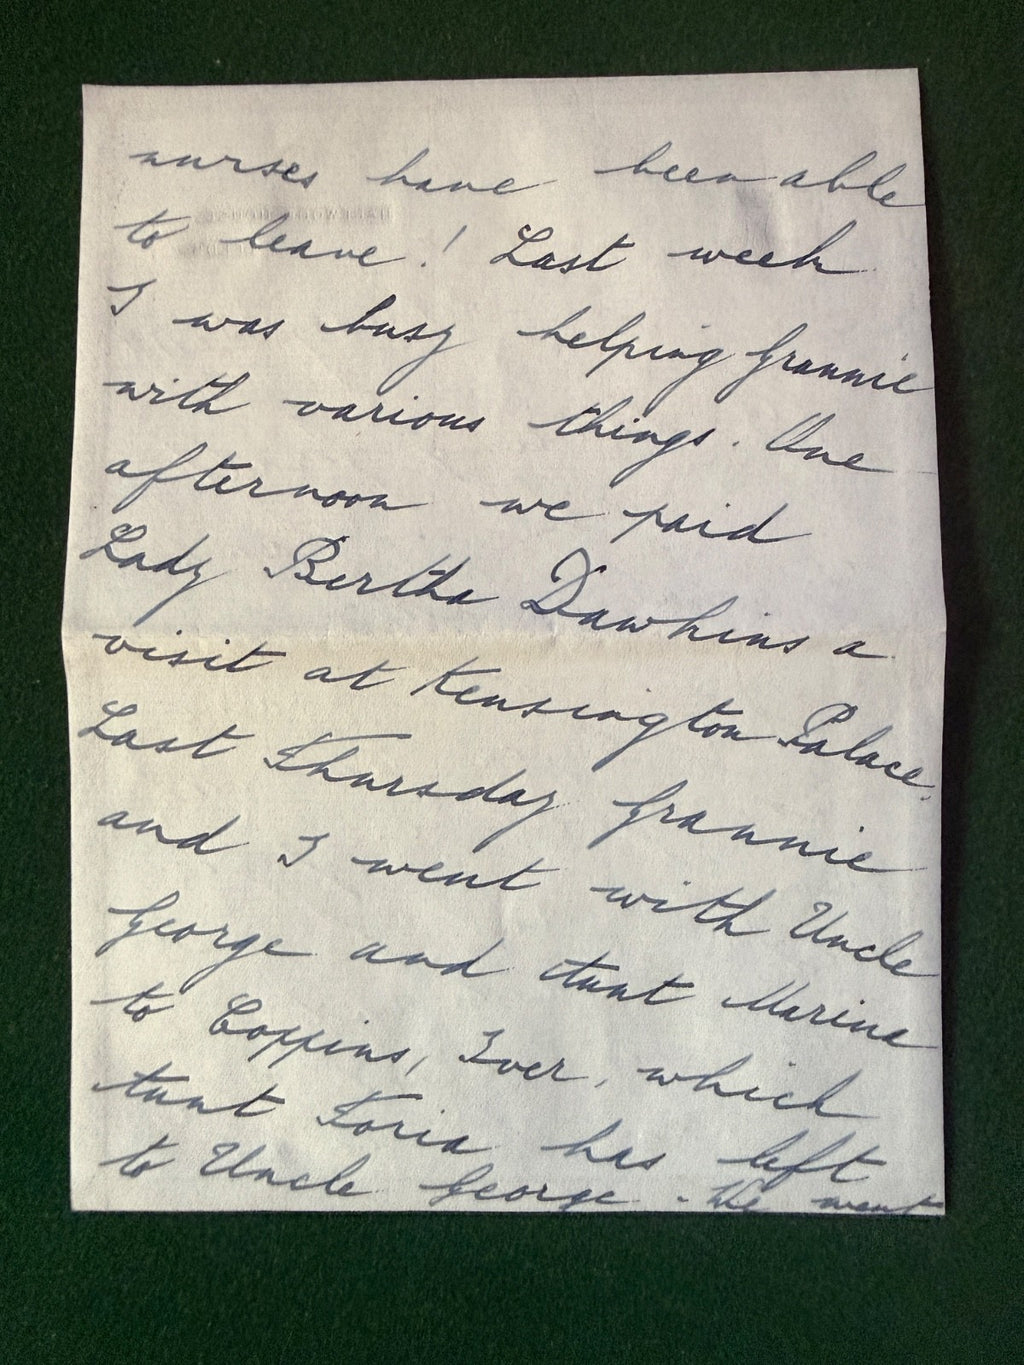 nurses have been able
to leave! Last week
I was busy helping Grannie
with various things. One
afternoon we paid
Lady Bertha Dawkins a
visit at Kensington Palace.
Last Thursday Grannie
and I went with Uncle
George and Aunt Marina
to Coppins, Iver, which
Aunt Toria has left
to Uncle George. We went